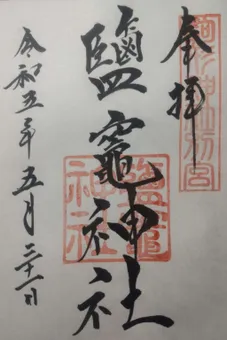 奉拝
鹽竈神社
令和五年五月二十一日
鹽竈
神社